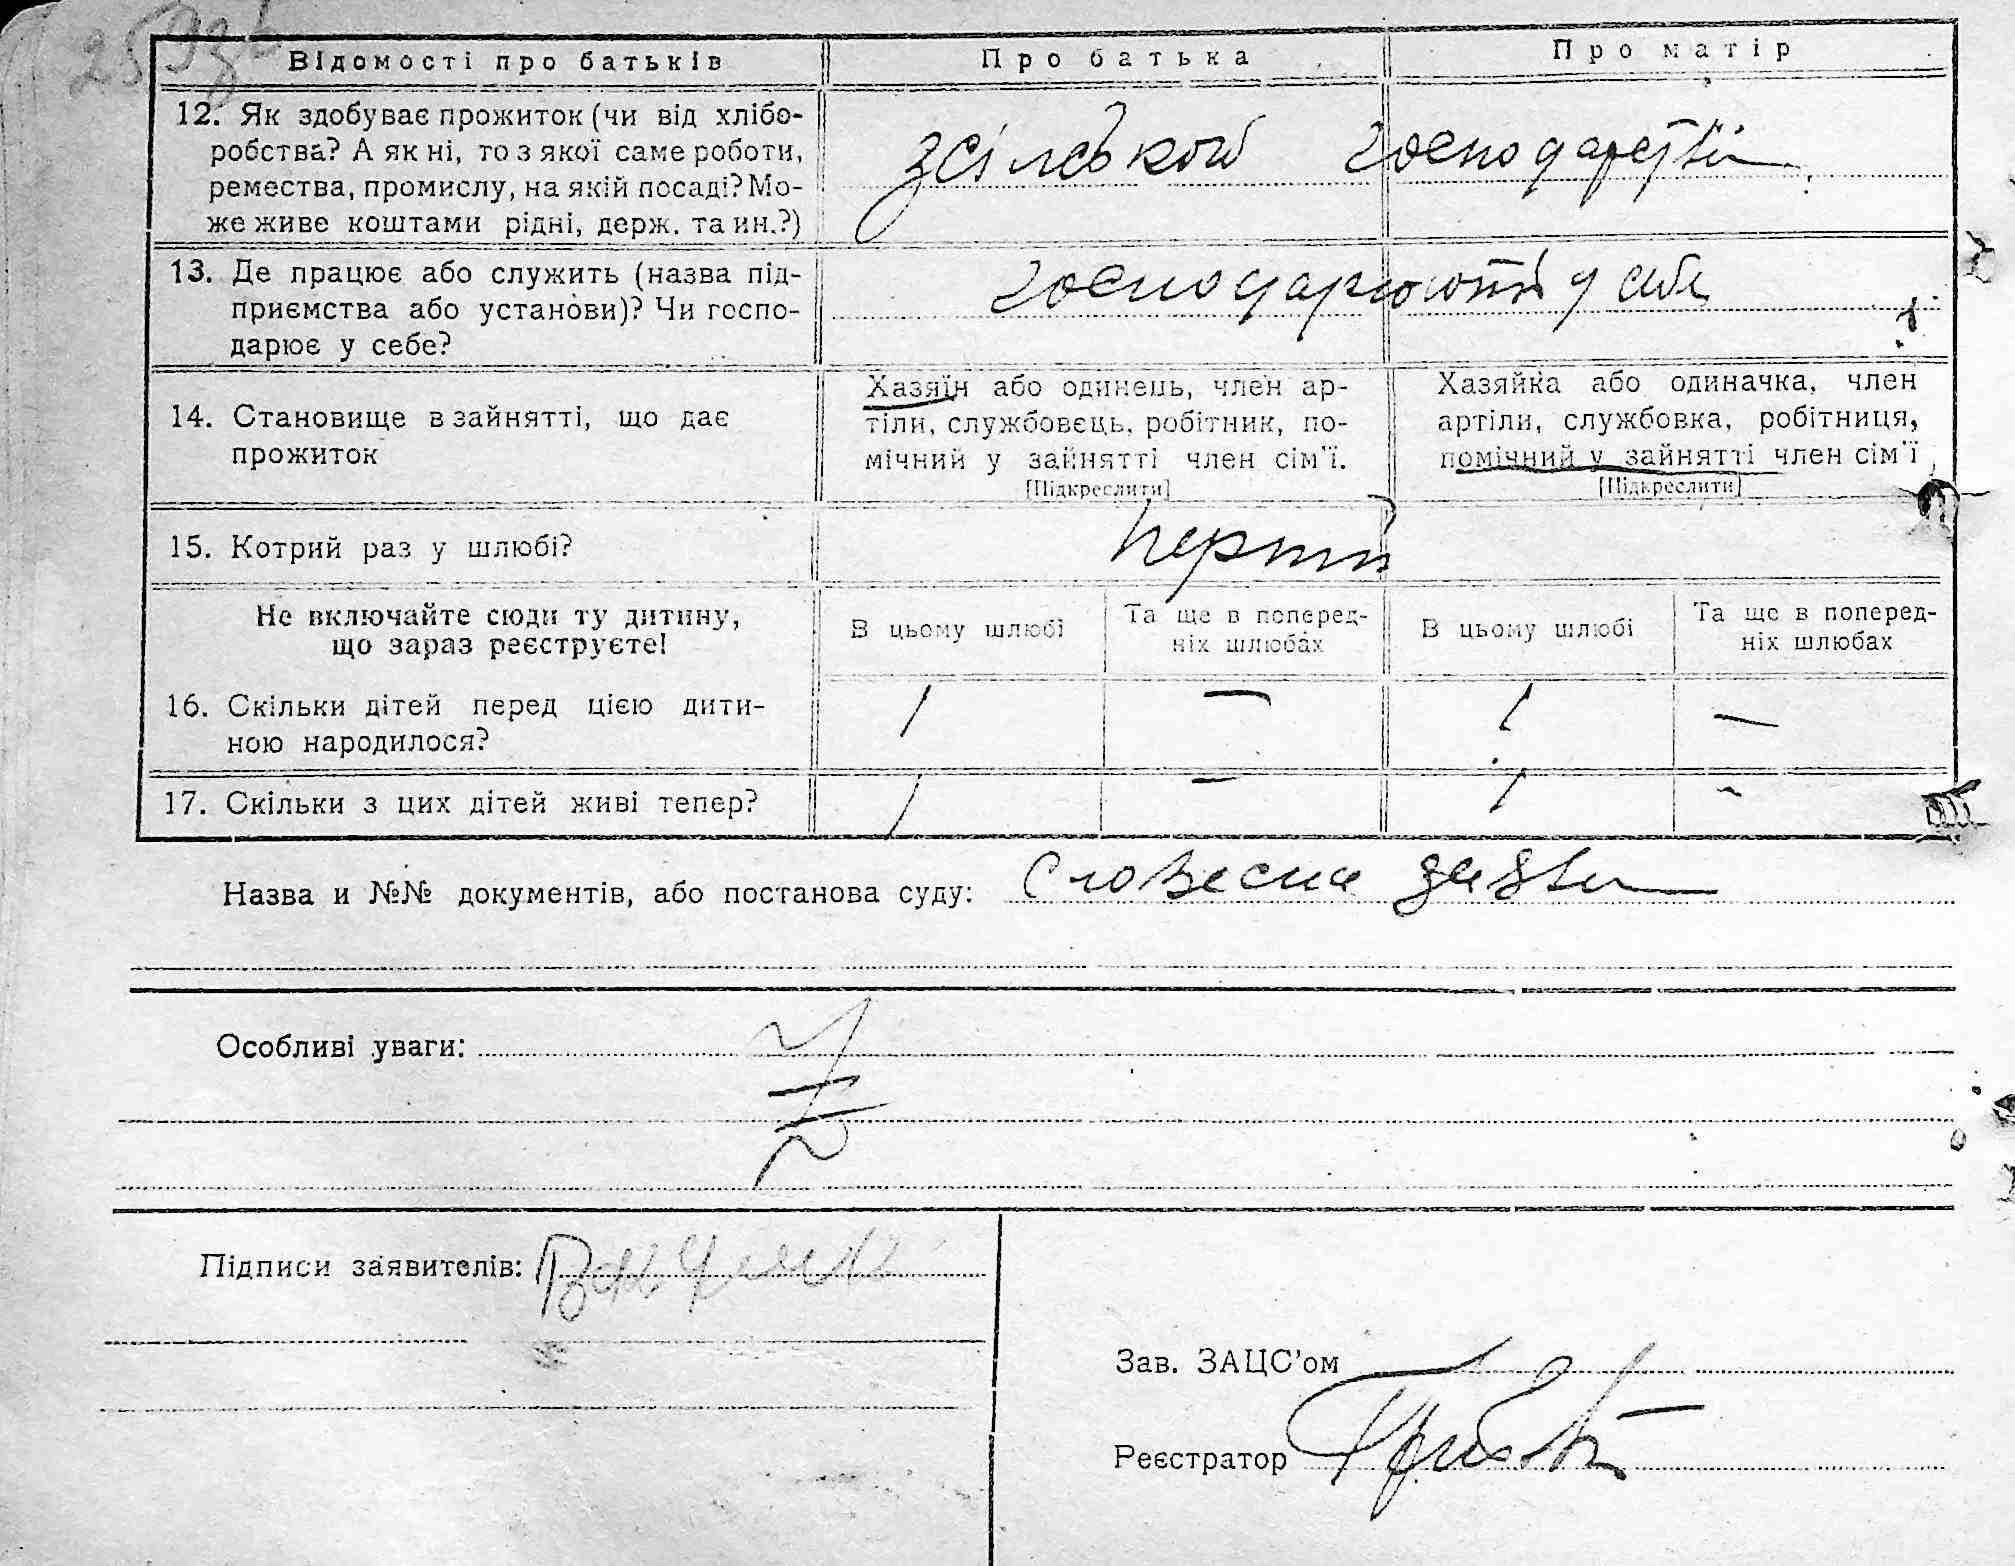 Відомості про батьків Про батька Про матір
12. Як здобуває прожиток (чи від хлібо-
робства? А як ні, то з якої саме роботи,
ремества, промислу, на якій посаді? Мо-
же живе коштами рідні, держ. та ин.?)
з сільської господарства
13. Де працює або служить (назва під-
приємства або установи)? Чи госпо-
дарює у себе?
господарюють у себе
14. Становище в зайнятті, що дає
прожиток
Хазяїн або одинець, член ар-
тіли, службовець, робітник, по-
мічний у зайнятті член сім'ї.
[Підкреслити]
Хазяйка або одиначка, член
артіли, службовка, робітниця,
помічний у зайнятті член сім'ї
[Підкреслити]
15. Котрий раз у шлюбі?
перший
Не включайте сюди ту дитину,
що зараз реєструєте!
В цьому шлюбі
Та ще в поперед-
ніх шлюбах
В цьому шлюбі
Та ще в поперед-
ніх шлюбах
16. Скільки дітей перед цією дити-
ною народилося?
1 — 1 —
17. Скільки з цих дітей живі тепер?
1 — 1 -
Назва и №№ документів, або постанова суду: Словесна заява
Особливі уваги:
Підписи заявителів:
Зав. ЗАЦС'ом
Реєстратор